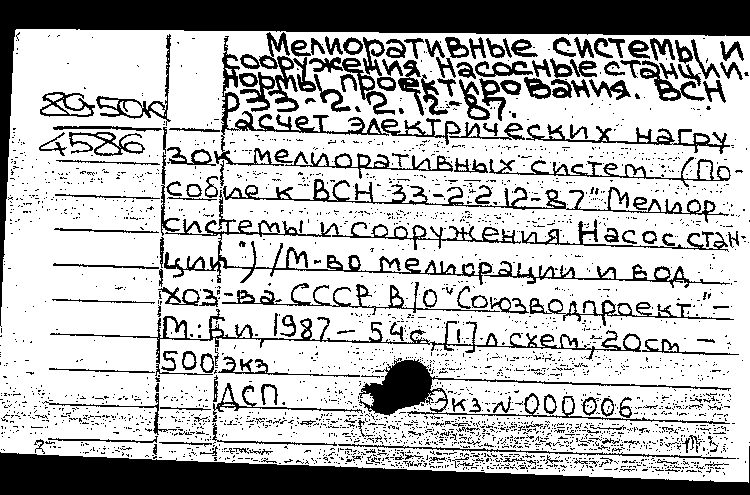 Мелиоративные системы и
сооружения. Насосные станции.
Нормы проектирования. ВСН
33-2.2.12-87.
89-50к
4586
Расчет электрических нагру
зок мелиоративных систем: (По-
собие к ВСН 33-2.2.12-87 "Мелиор.
системы и сооружения. Насос. стан-
ции") / М-во мелиорации и вод.
хоз-ва СССР, В/О "Союзводпроект". –
М.: Б.и., 1987 – 54с., [1] л. схем.; 20см –
500 экз
ДСП. Экз. № 000006